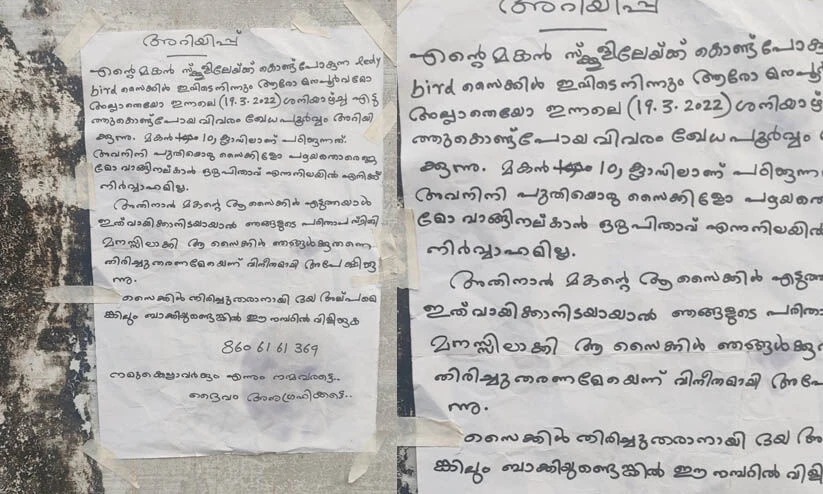 അറിയിപ്പ്
എന്റെ മകൻ സ്കൂളിലേയ്ക്ക് കൊണ്ട് പോകുന്ന ledy
bird സൈക്കിൾ ഇവിടെ നിന്നും ആരോ മനപൂർവമോ
അല്ലാതെയോ ഇന്നലെ (19.3.2022) ശനിയാഴ്ച്ച എടു
ത്തുകൊണ്ട്പോയ വിവരം ഖേധപൂർവ്വം അറിയി
ക്കുന്നു. മകൻ 10, ക്ലാസിലാണ് പഠിക്കുന്നത്.
അവനിനി പുതിയൊരു സൈക്കിളോ പഴയതൊരെണ്ണ
മോ വാങ്ങിനല്കാൻ ഒരുപിതാവ് എന്നനിലയിൽ എനിക്ക്
നിർവ്വാഹമില്ല.
അതിനാൽ മകന്റെ ആ സൈക്കിൾ എടുത്തയാൾ
ഇത് വായിക്കാനിടയായാൽ ഞങ്ങളുടെ പരിതാപസ്ഥിതി
മനസ്സിലാക്കി ആ സൈക്കിൾ ഞങ്ങൾക്കുതന്നെ
തിരിച്ചുതരണമേയെന്ന് വിനീതമായി അപേക്ഷിക്കു
ന്നു.
സൈക്കിൾ തിരിച്ചുതരാനായി ദയ അല്പമെ
ങ്കിലും ബാക്കിയുണ്ടെങ്കിൽ ഈ നമ്പരിൽ വിളിക്കുക
860 61 61 369
നമുക്കെല്ലാവർക്കും എന്നും നന്മവരട്ടെ..
ദൈവം അനുഗ്രഹിക്കട്ടെ..
അറിയിപ്പ്
എന്റെ മകൻ സ്കൂളിലേയ്ക്ക് കൊണ്ട് പോകു
bird സൈക്കിൾ ഇവിടെ നിന്നും ആരോ മനപൂർ
അല്ലാതെയോ ഇന്നലെ (19.3.2022) ശനിയാഴ്
ത്തുകൊണ്ട്പോയ വിവരം ഖേധപൂർവ്വം
ക്കുന്നു. മകൻ 10, ക്ലാസിലാണ് പഠിക്കുന്ന
അവനിനി പുതിയൊരു സൈക്കിളോ പഴയതൊ
മോ വാങ്ങിനല്കാൻ ഒരുപിതാവ് എന്നനിലയിൽ
നിർവ്വാഹമില്ല.
അതിനാൽ മകന്റെ ആ സൈക്കിൾ എടുത്ത
ഇത് വായിക്കാനിടയായാൽ ഞങ്ങളുടെ പരിതാ
മനസ്സിലാക്കി ആ സൈക്കിൾ ഞങ്ങൾക്കു
തിരിച്ചുതരണമേയെന്ന് വിനീതമായി അപേ
ന്നു.
സൈക്കിൾ തിരിച്ചുതരാനായി ദയ അ
ങ്കിലും ബാക്കിയുണ്ടെങ്കിൽ ഈ നമ്പരിൽ വിളി